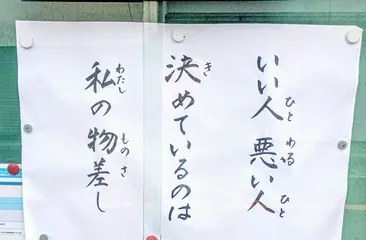 いい人 悪い人
決めているのは
私の物差し